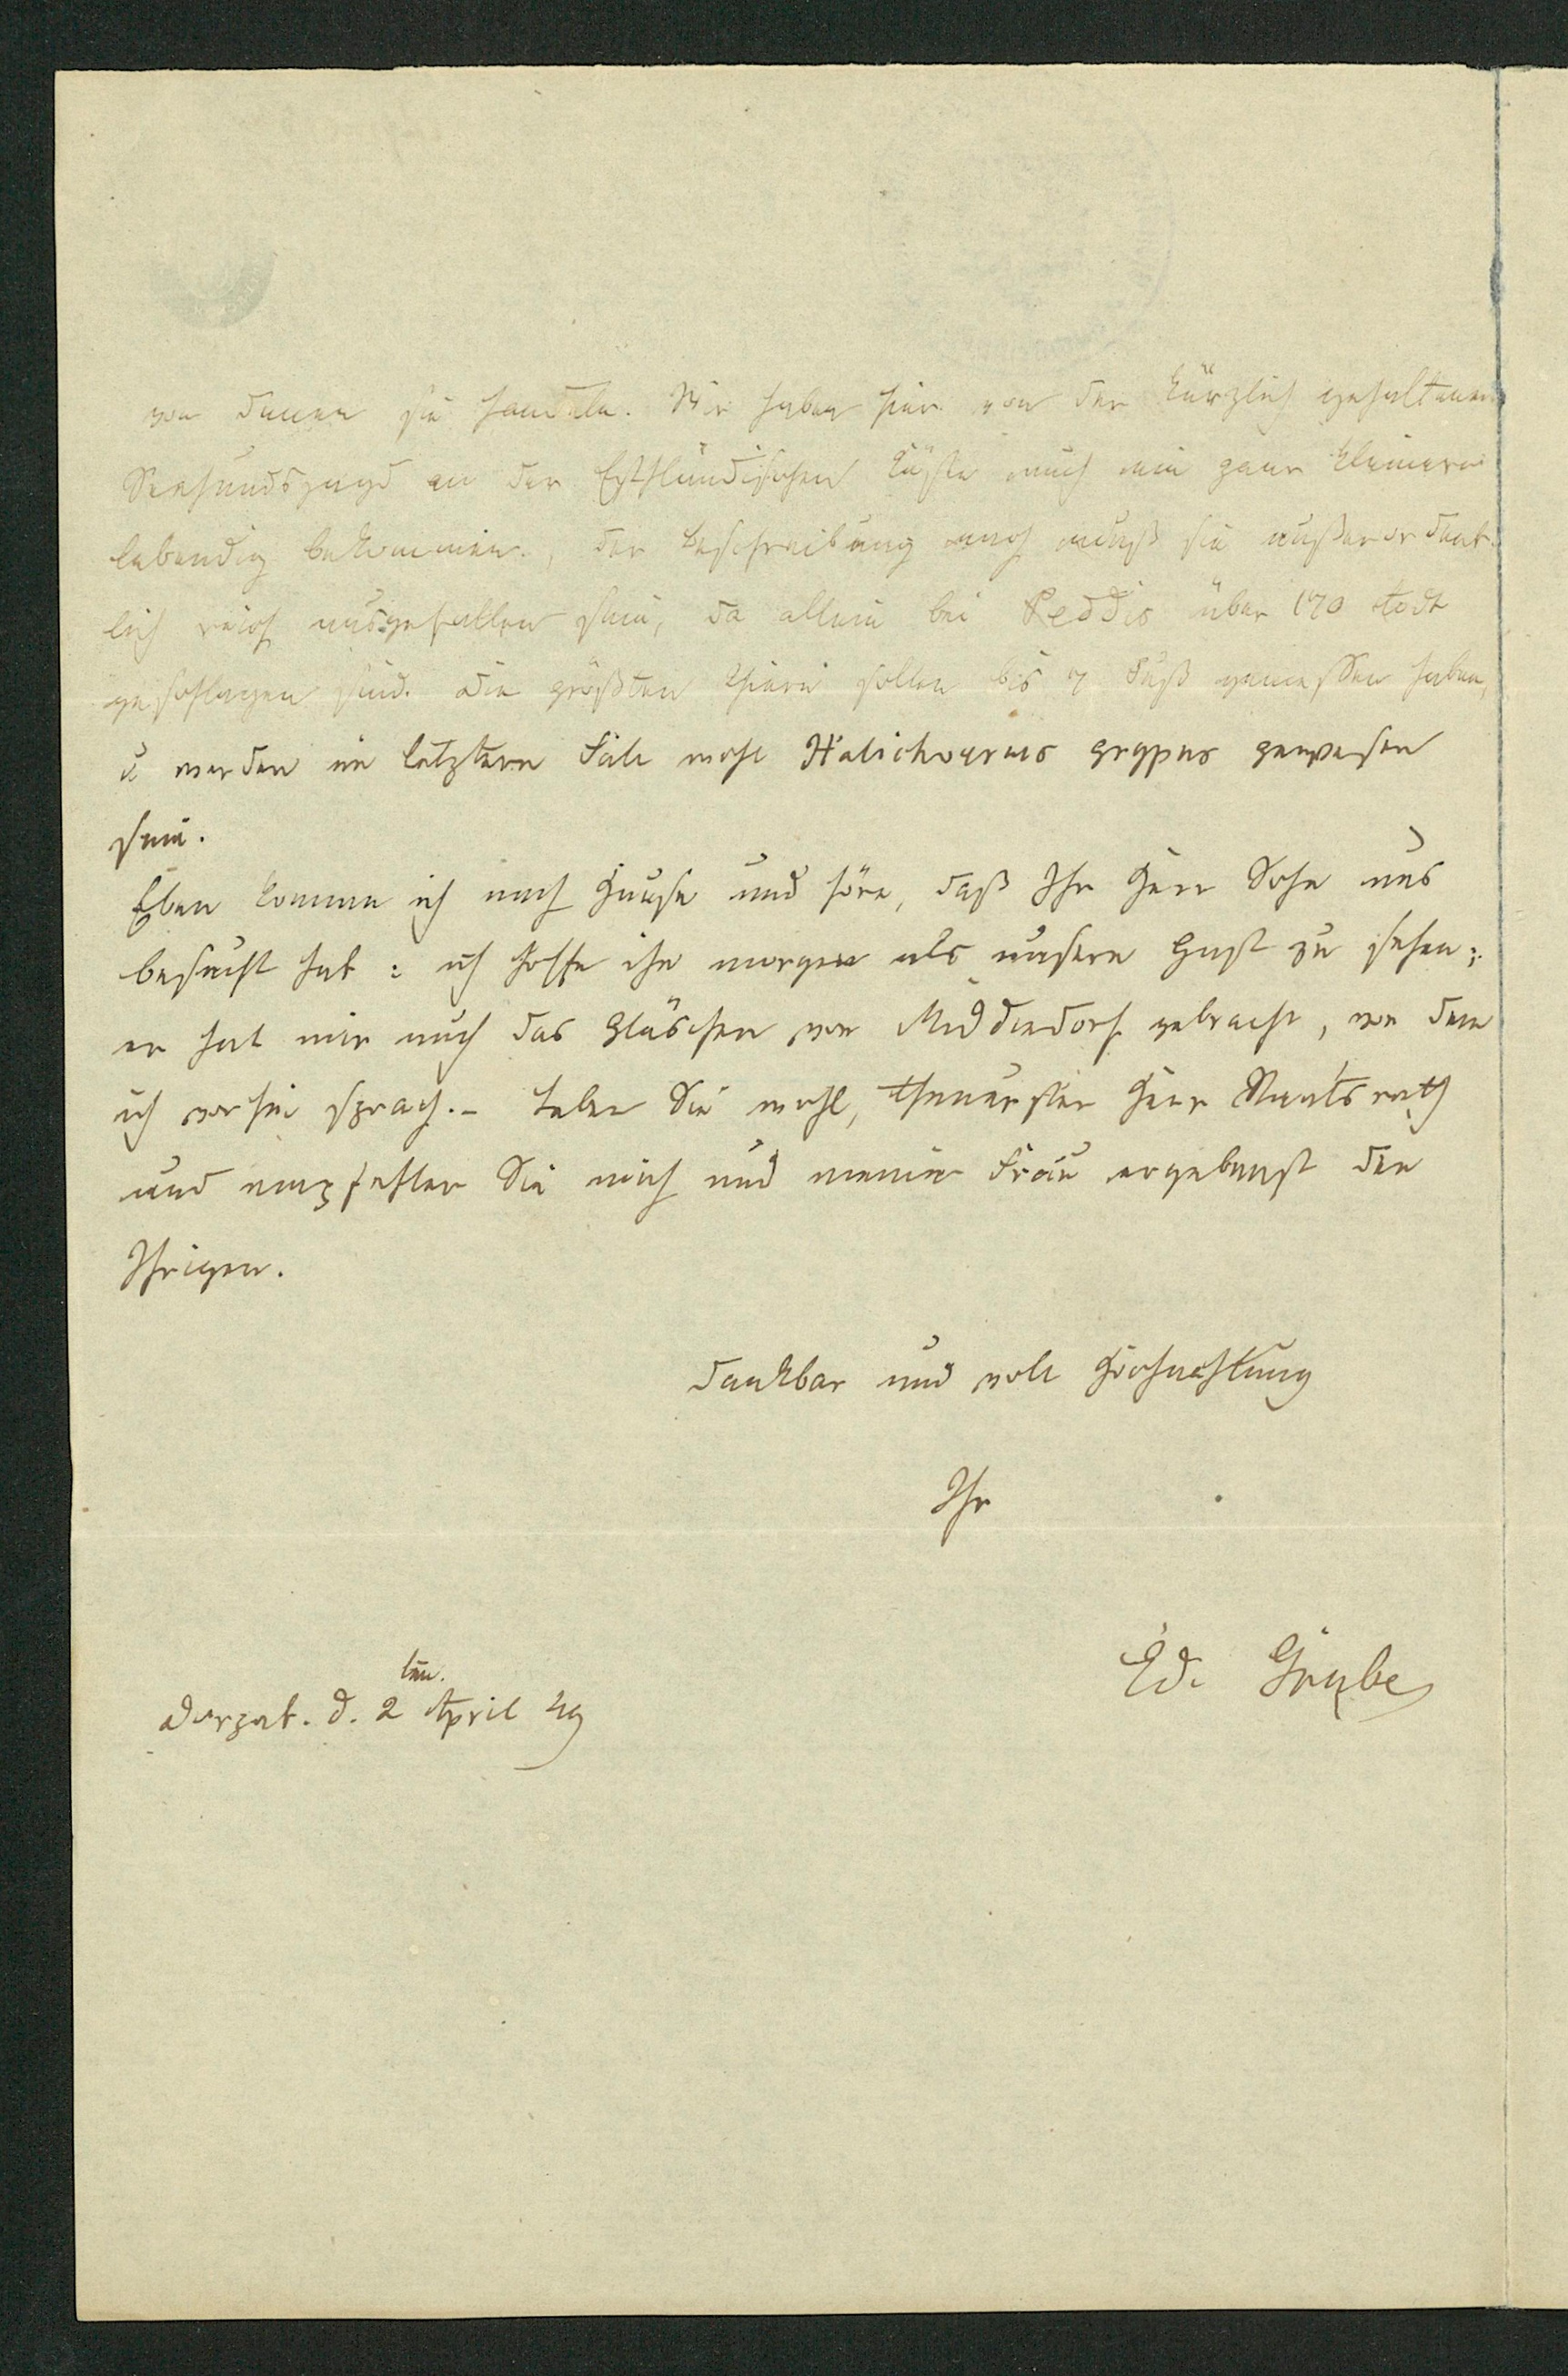 von denen sie handeln. Wir haben hier von der kürzlich gehaltenen
Seehundsjagd an der Esthländischen Küste auch ein paar kleinere
lebendig bekommen, der Beschreibung nach muß sie außerordent-
lich reich ausgefallen sein, da allein bei Peddis über 170 todt
geschlagen sind. Die größten Thiere sollen bis 7 Fuß gemessen haben,
u werden im letztern Falle wohl Halichoerus grypus gewesen
sein.
Eben komme ich nach Hause und höre, daß Ihr Herr Sohn uns
besucht hat: ich hoffe ihn morgen als unsern Gast zu sehen;
er hat mir auch das Gläschen von Middendorf gebracht, von dem
ich vorhin sprach. – Leben Sie wohl, theuerster Herr Staatsrath
und empfehlen Sie mich und meine Frau ergebenst den
Ihrigen.
Dankbar und voll Hochachtung
Ihr
Ed. Grube
Dorpat. d. 2ten. April 49